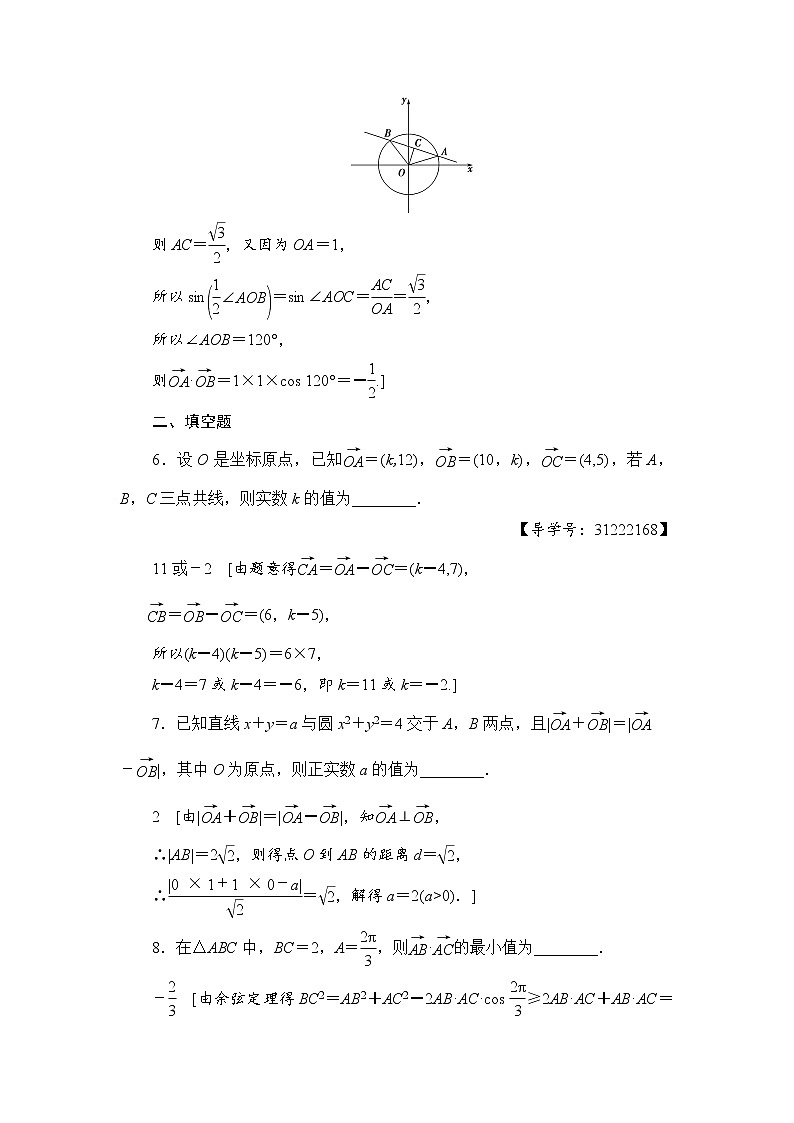 y
B
C
A
O
x
则 AC=√3/2，又因为 OA=1，
所以 sin(1/2∠AOB)=sin ∠AOC=AC/OA=√3/2，
所以∠AOB=120°，
则OA→·OB→=1×1×cos 120°=－1/2.]
二、填空题
6．设 O 是坐标原点，已知OA→=(k,12)，OB→=(10，k)，OC→=(4,5)，若 A，
B，C 三点共线，则实数 k 的值为________．
【导学号：31222168】
11 或－2　[由题意得CA→=OA→－OC→=(k－4,7)，
CB→=OB→－OC→=(6，k－5)，
所以(k－4)(k－5)=6×7，
k－4=7 或 k－4=－6，即 k=11 或 k=－2.]
7．已知直线 x+y=a 与圆 x²+y²=4 交于 A，B 两点，且|OA→+OB→|=|OA→
－OB→|，其中 O 为原点，则正实数 a 的值为________．
2　[由|OA→+OB→|=|OA→－OB→|，知OA→⊥OB→，
∴|AB|=2√2，则得点 O 到 AB 的距离 d=√2，
∴|0 × 1+1 × 0－a|/√2=√2，解得 a=2(a>0)．]
8．在△ABC 中，BC=2，A=2π/3，则AB→·AC→的最小值为________．
－2/3　[由余弦定理得 BC²=AB²+AC²－2AB·AC·cos 2π/3≥2AB·AC+AB·AC=